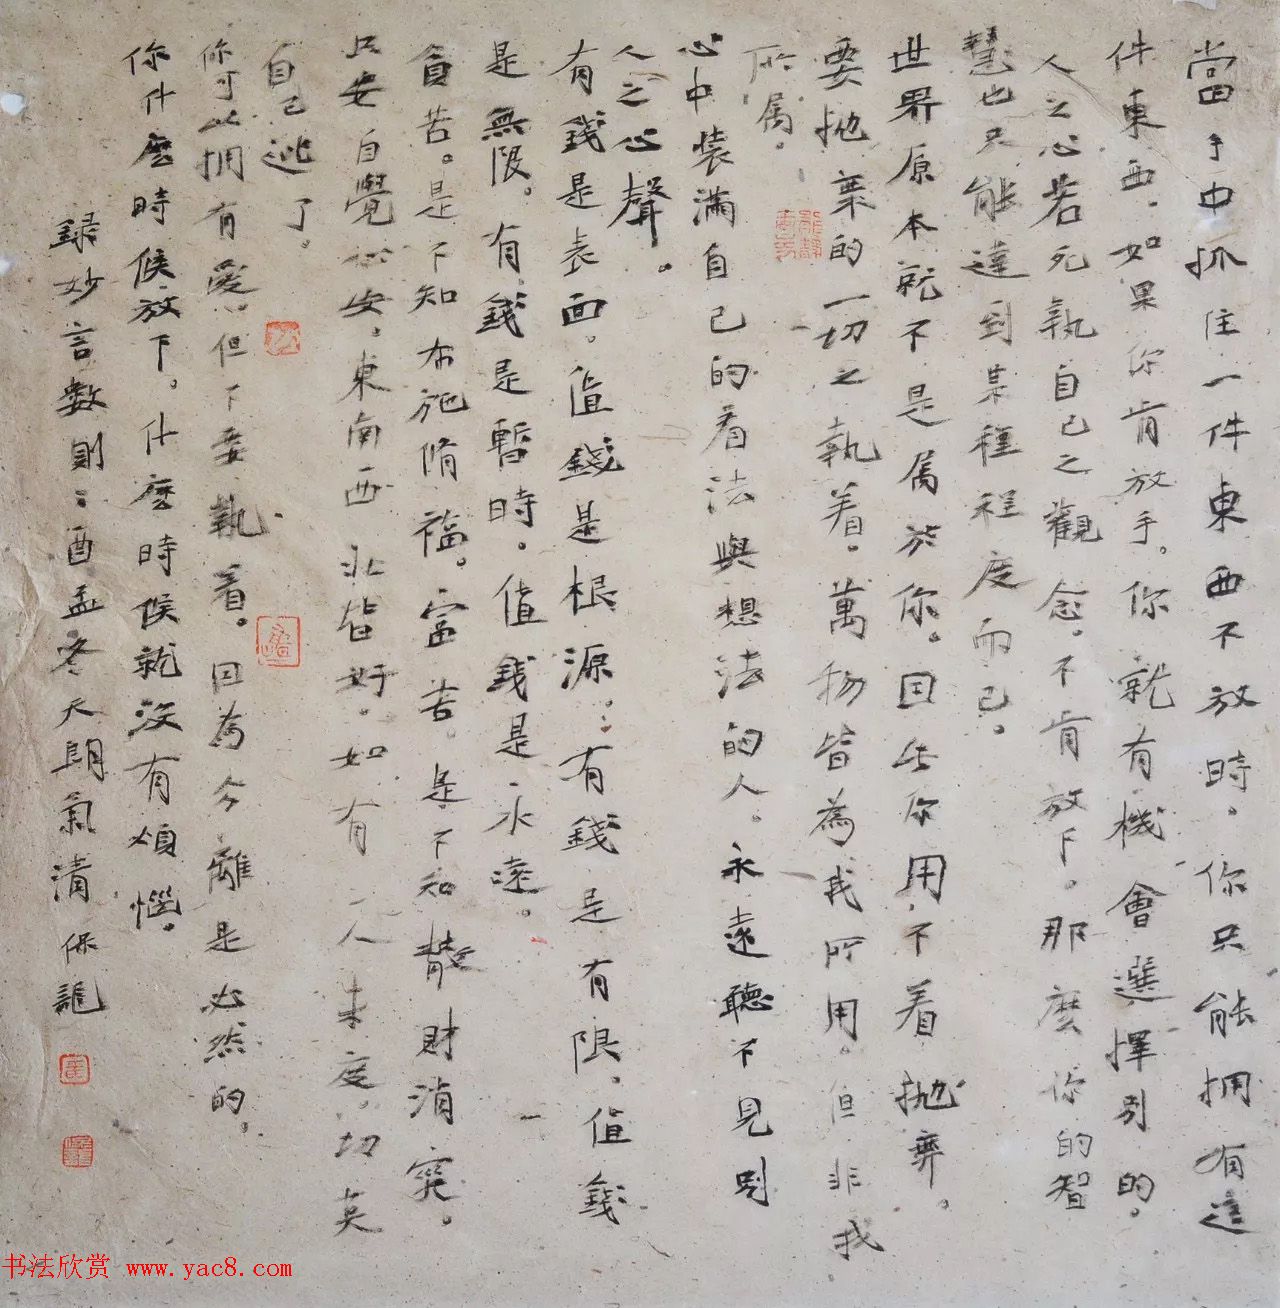 當手中抓住一件東西不放時。你只能拥有這
件東西。如果你肯放手。你就有機會選擇别的。
人之心若死執自己之觀念。不肯放下。那麼你的智
慧也只能達到某種程度而已。
世界原本就不是属於你。因此你用不着抛弃。
要抛棄的一切之執着。萬物皆為我所用。但非我
所属。
心中装滿自己的看法與想法的人。永遠聽不見别
人之心聲。
有錢是表面。值錢是根源。有錢是有限。值錢
是無限。有錢是暫時。值錢是永遠。
貧苦。是不知布施脩福。富苦。是不知散財消灾。
只要自覺心安。東南西北皆好。如有一人未度。切莫
自己逃了。
你可以拥有爱。但不要執着。因為分離是必然的。
你什麼時候放下。什麼時候就没有煩惱。
録妙言數則酉孟冬天朗氣清保龍
书法欣赏 www.yac8.com